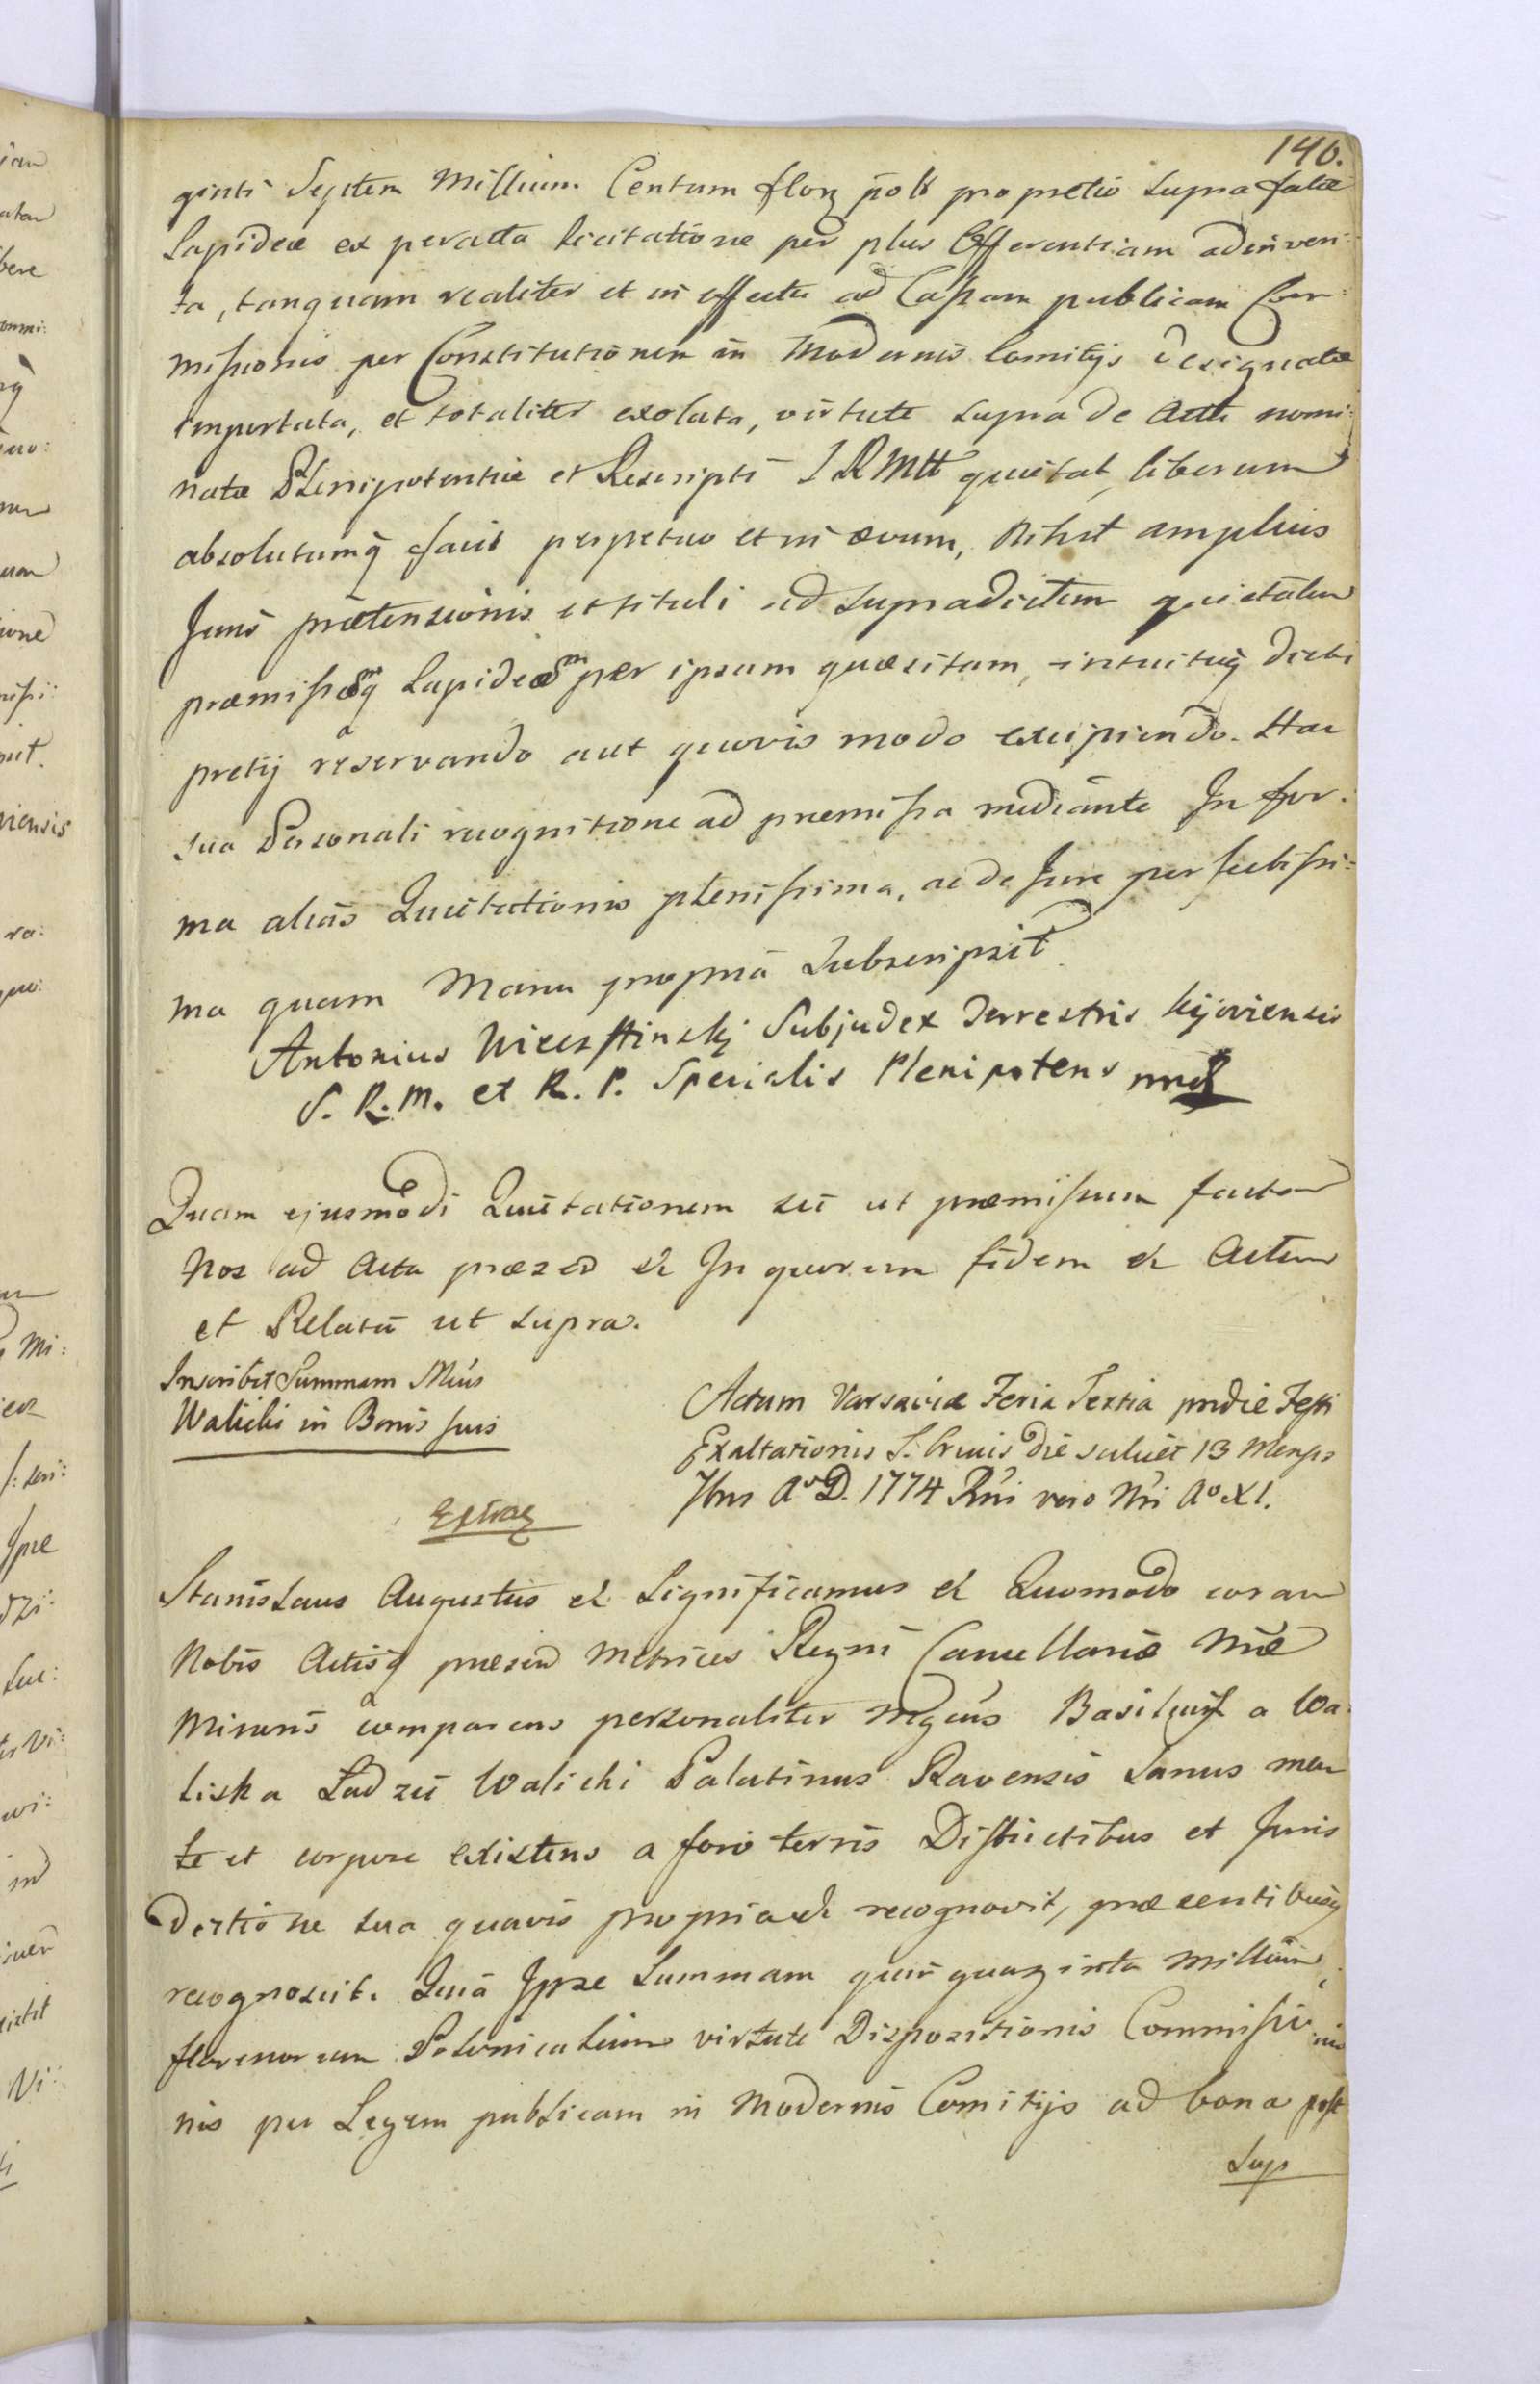 140.
ginti Septem Millium Centum flor: pol: pro pretio supra fatae
Lapideae ex peracta licitatione per plus Offerentiam adinven:
ta, tanquam realiter et in effectu ad Cassam publicam Com:
missionis per Constitutionem in Modernis Comitijs designatae
importata, et totaliter exoluta, virtute supra de Actu nomi:
natae Plenipotentiae et Rescripti S R Mtt quietat, liberum
absolutumq facit perpetuo et in aevum, Nihil amplius
Juris praetensionis et tituli ad supradictem quietatum
praemissamq Lapideam per ipsum quaesitam, intuituq dicti
pretij reservando aut quovis modo excipiendo. Hac
sua Personali recognitione ad praemissa mediante In for:
ma alias Quietationis plenissima, ac de Jure perfectissi:
ma quam Manu propria Subscripsit
Antonius Subjudex Terrestris Kijoviensis
S. R. M. et R. P. Specialis Plenipotens mp
Quam ejusmodi Quietationem sic ut praemissum factam
Nos ad Acta praesen & In quorum fidem & Actum
et Relatū ut supra.
Inscribit Summam Mcus
Walicki in Bonis suis
Actum Varsaviae Feria Tertia pridie Festi
Exaltationis S. Crucis die scilicet 13 Mensis
7bris Ao D. 1774 Rni vero Nri Ao XI.
Extrad
Stanislaus Augustus & Significamus & Quomodo coram
Nobis Actisq praesen Metrices Regni Cancellariae Nrae
Minoris comparens personaliter Mgcus Basilius a Wa:
liska Ladzic Walicki Palatinus Ravensis Sanus men
te et corpore existens a foro terris Districtibus et Juris
dictione sua quavis propria & recognovit, praesentibusq
recognoscit. Quia Ipse Summam quinquaginta Millium
florenorum Polonicalium virtute Dispositionis Commissio
nis per Legem publicam in Modernis Comitijs ad bona post
Sup